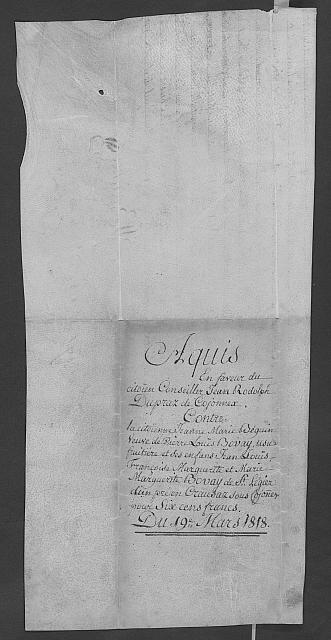 Aquis
En faveur du
citoien Conseiller Jean Rodolph
Dupraz de Cojonnex.
Contre
la citoienne Jeanne Marie Béguin
Veuve de Pierre Louis Bovay, usu-
fruitière et ses enfans Jean Louis
Françoise Marguerite et Marie
Marguerite Bovay de St. Légier
d'un pré en Craubaz sous
pour Six cens francs.
Du 19e. Mars 1818.